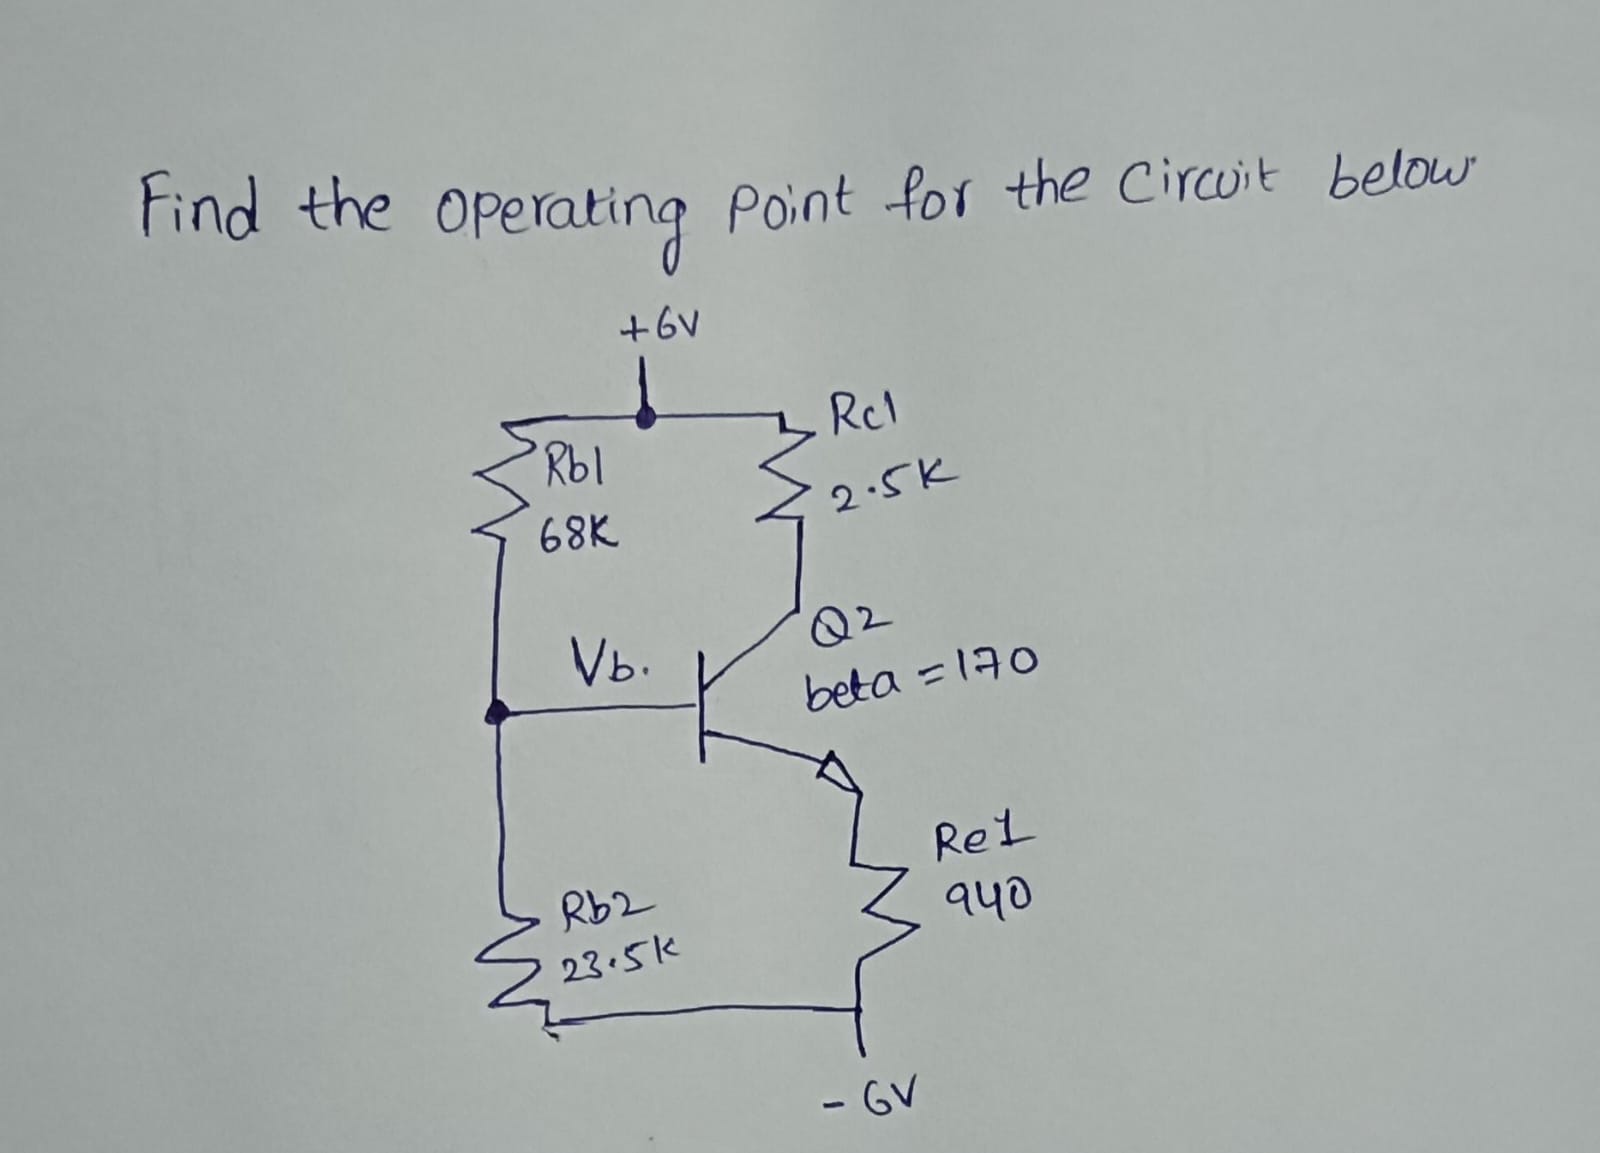 Find the operating point for the circuit below
+6V
Rc1
Rb1
2.5K
68K
Q2
Vb.
beta = 170
Re1
940
Rb2
23.5K
- 6V